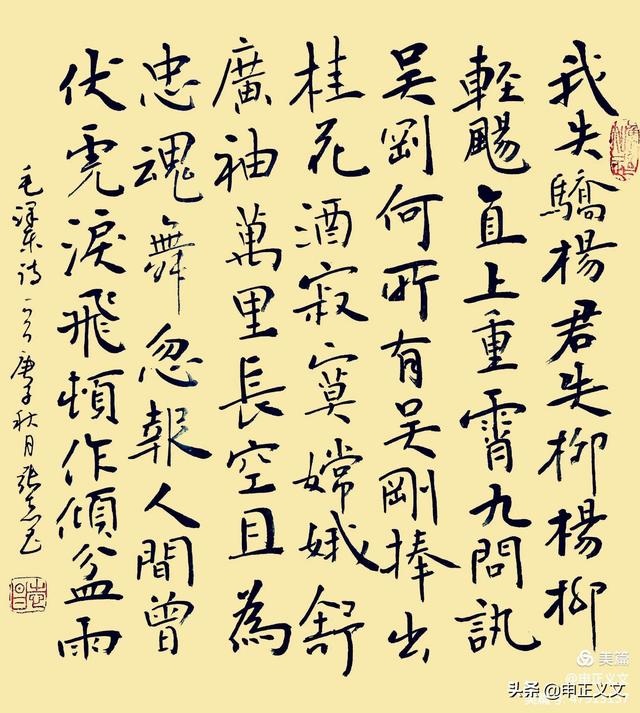 我失驕楊君失柳楊柳
輕颺直上重霄九問訊
吴剛何所有吴剛捧出
桂花酒寂寞嫦娥舒
廣袖萬里長空且為
忠魂舞忽報人間曾
伏虎淚飛頓作傾盆雨
毛泽东诗一首庚子秋月张
美篇
@申正义文
头条 @申正义文